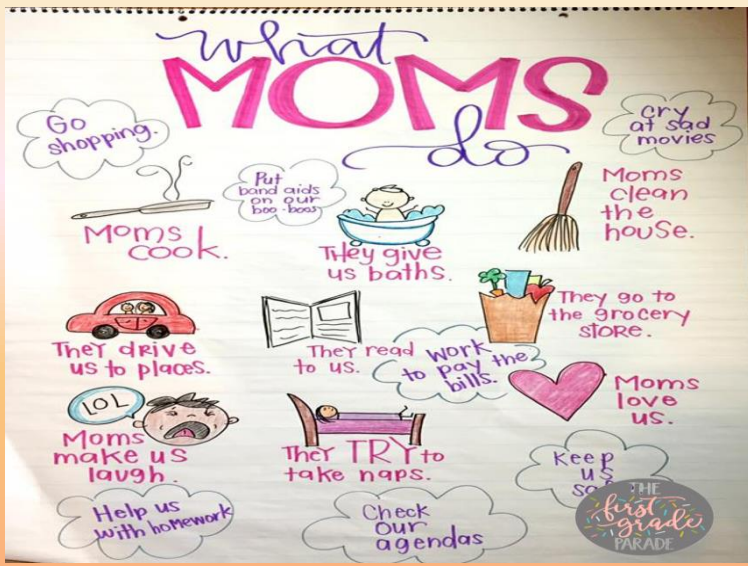 what
MOMS
do
Go
shopping.
Cry
at sad
movies
Put
band aids
on our
boo-boos
Moms
cook.
They give
us baths.
Moms
clean
the
house.
They drive
us to places.
They read
to us.
work
to pay the
bills.
They go to
the grocery
store.
LOL
Moms
make us
laugh.
They TRY to
take naps.
Moms
love
us.
Keep
us
Help us
with homework
Check
our
agendas
THE
first
grade
PARADE